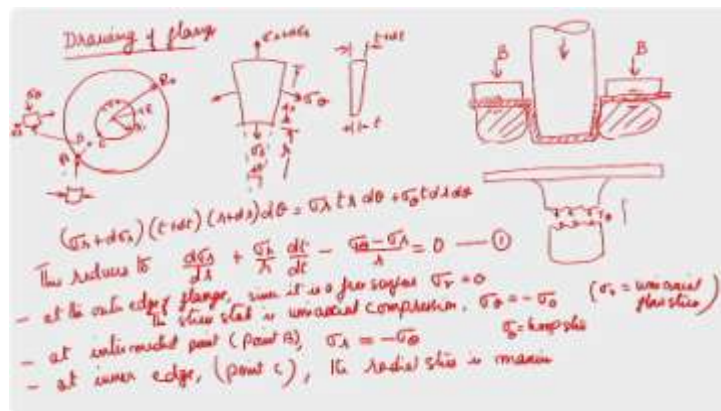 Drawing of flange
σr+dσr
t+dt
σθ
R0
B
B
σθ
t
σr
(σr+dσr)(t+dt)(r+dr)dθ = σr t r dθ + σθ t dr dθ
This reduces to dσr/dr + σr/r dt/dt - (σθ-σr)/r = 0 — ①
- at the outer edge of flange, since it is a free surface σr = 0
the stress state is uniaxial compression, σθ = -σ0 (σ0 = uniaxial flow stress)
- at intermediate point (point B), σr = -σθ σθ = hoop stress
- at inner edge, (point C), the radial stress is maxim